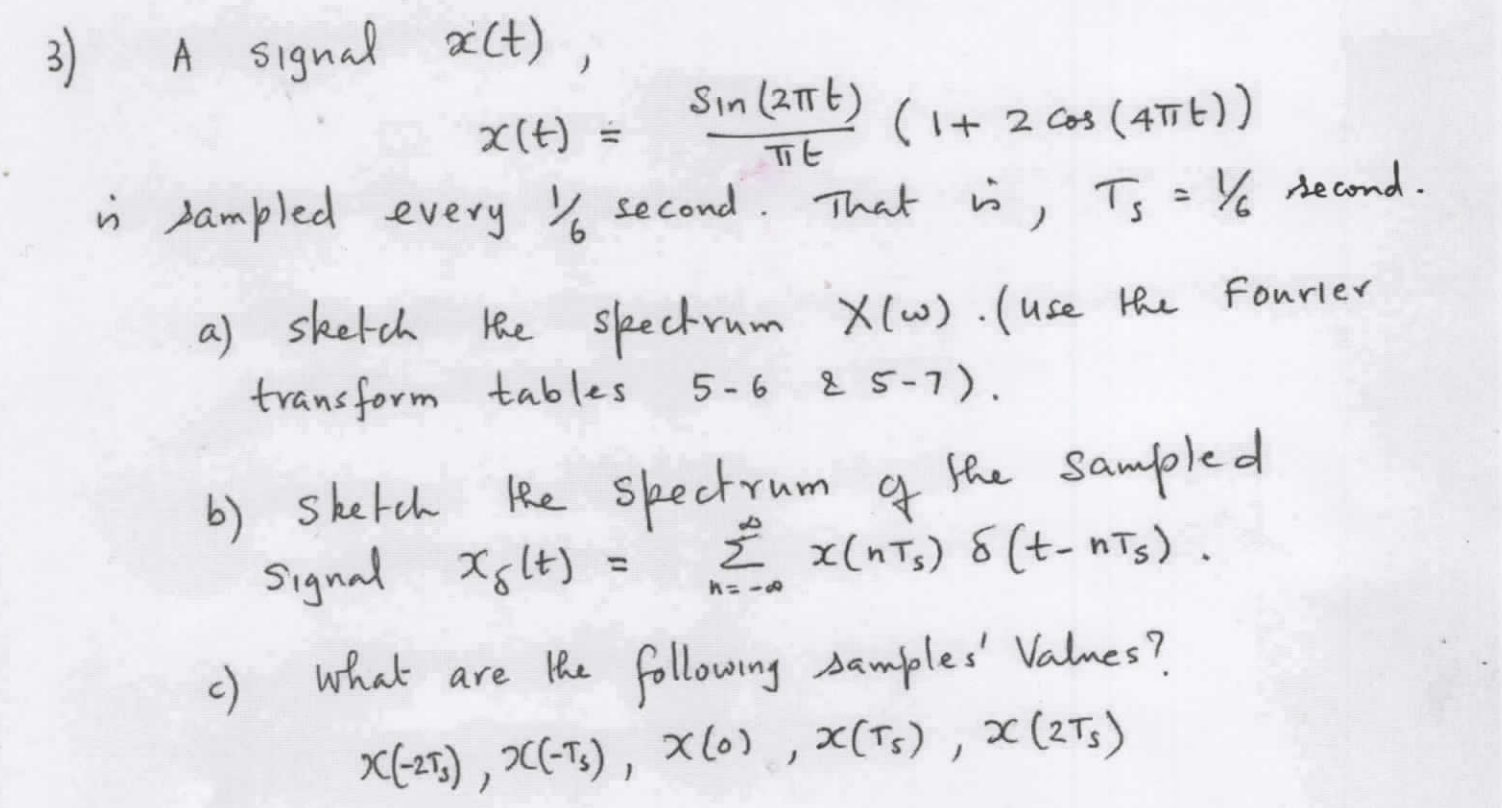 3) A signal x(t),
x(t) = sin(2πt)/πt (1 + 2 cos(4πt))
is sampled every 1/6 second. That is, Ts = 1/6 second.
a) sketch the spectrum X(ω). (use the Fourier
transform tables 5-6 & 5-7).
b) sketch the spectrum of the sampled
signal xδ(t) = Σ_{n=-∞}^{∞} x(nTs) δ(t-nTs).
c) what are the following samples' values?
x(-2Ts), x(-Ts), x(0), x(Ts), x(2Ts)